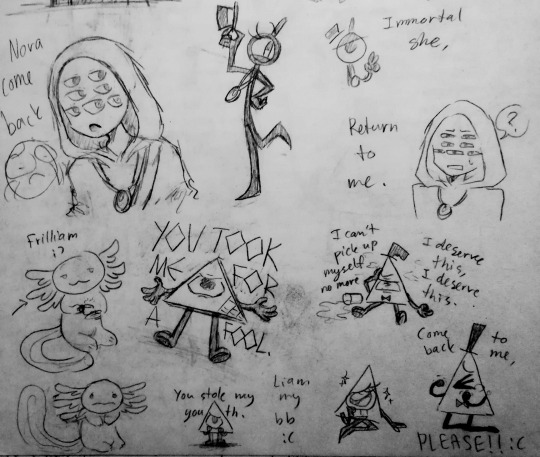 Nova
come
back
Immortal
she,
Return
to
me.
?
Frilliam
:?
YOU TOOK
ME FOR
A FOOL.
I can't
pick up
myself
no more
I deserve
this,
I deserve
this.
Come to
back me,
PLEASE!! :C
You stole my
youth.
Liam
my
bb
:C